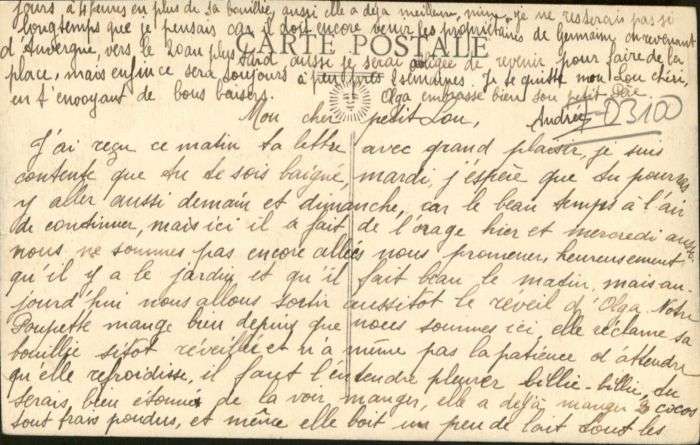 CARTE POSTALE
Mon cher petit Lou,
J'ai reçu ce matin ta lettre avec grand plaisir, je suis
contente que tu te sois baigné, mardi, j'espère que tu pourras
y aller aussi demain et dimanche, car le beau temps a l'air
de continuer, mais ici il a fait de l'orage hier et mercredi aussi
nous ne sommes pas encore allées nous promener, heureusement
qu'il y a le jardin et qu'il fait beau le matin, mais au-
jourd'hui nous allons sortir aussitôt le réveil d'Olga. Notre
Poupette mange bien depuis que nous sommes ici, elle réclame sa
bouillie sitôt réveillée et n'a même pas la patience d'attendre
qu'elle refroidisse, il faut l'entendre pleurer billie-billie, tu
serais bien étonné de la voir manger, elle a déjà mangé 3 cocos
tout frais pondus, et même elle boit un peu de lait tout les
jours à 4 heures en plus de sa bouillie, aussi elle a déjà meilleure mine, je ne resterais pas si
longtemps que je pensais car il doit encore venir les propriétaires de Germaine en revenant
d'Auvergne, vers le 20 au plus tard, aussi je serai obligée de revenir pour faire de la
place, mais enfin ce sera toujours à peu près 2 semaines. Je te quitte mon Lou chéri,
en t'envoyant de bons baisers. Olga embrasse bien son petit Père.
Andrée
D3100